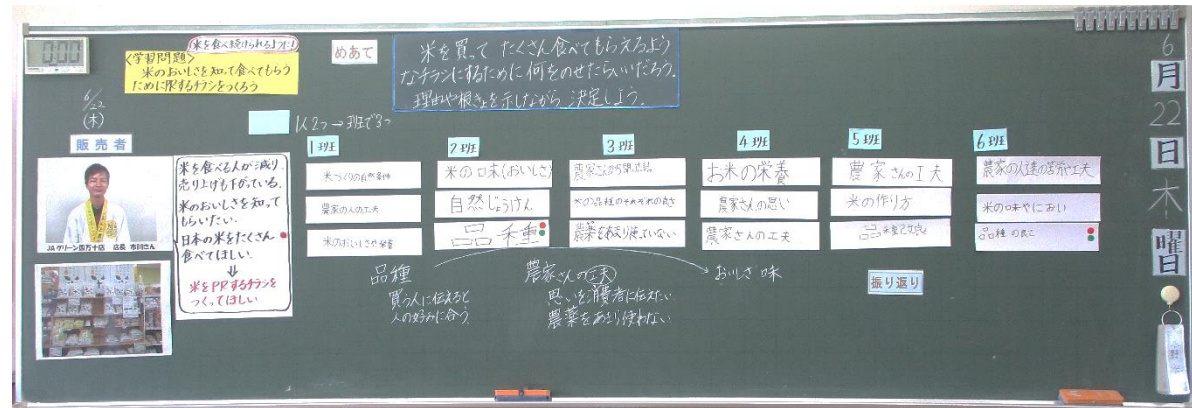 0:00
米を食べ続けられるように!
<学習問題>
米のおいしさを知って食べてもらう
ためにPRするチラシをつくろう
めあて
米を買って たくさん食べてもらえるよう
なチラシにするために何をのせたらいいだろう。
理由や根きょを示しながら 決定しよう。
6/22
(木)
1人2つ→班で3つ
販売者
米を食べる人が減り
売り上げも下がっている。
米のおいしさを知って
もらいたい。
日本の米をたくさん
食べてほしい。
↓
米をPRするチラシを
つくってほしい
JAグリーン四万十店 店長 市川さん
1班
米づくりの自然条件
農家の人の工夫
米のおいしさや栄養
2班
米の味(おいしさ)
自然じょうけん
品種
3班
農家さんから
米の品種のそれぞれの良さ
農薬をあまり使っていない
4班
お米の栄養
農家さんの思い
農家さんの工夫
5班
農家さんの工夫
米の作り方
品種
6班
農家の人達の苦労や工夫
米の味やにおい
品種の良さ
品種
買う人に伝えると
人の好みに合う。
農家さんの工夫
思いを消費者に伝えたい
農薬をあまり使わない
おいしさ 味
振り返り
6
月
22
日
木
曜日